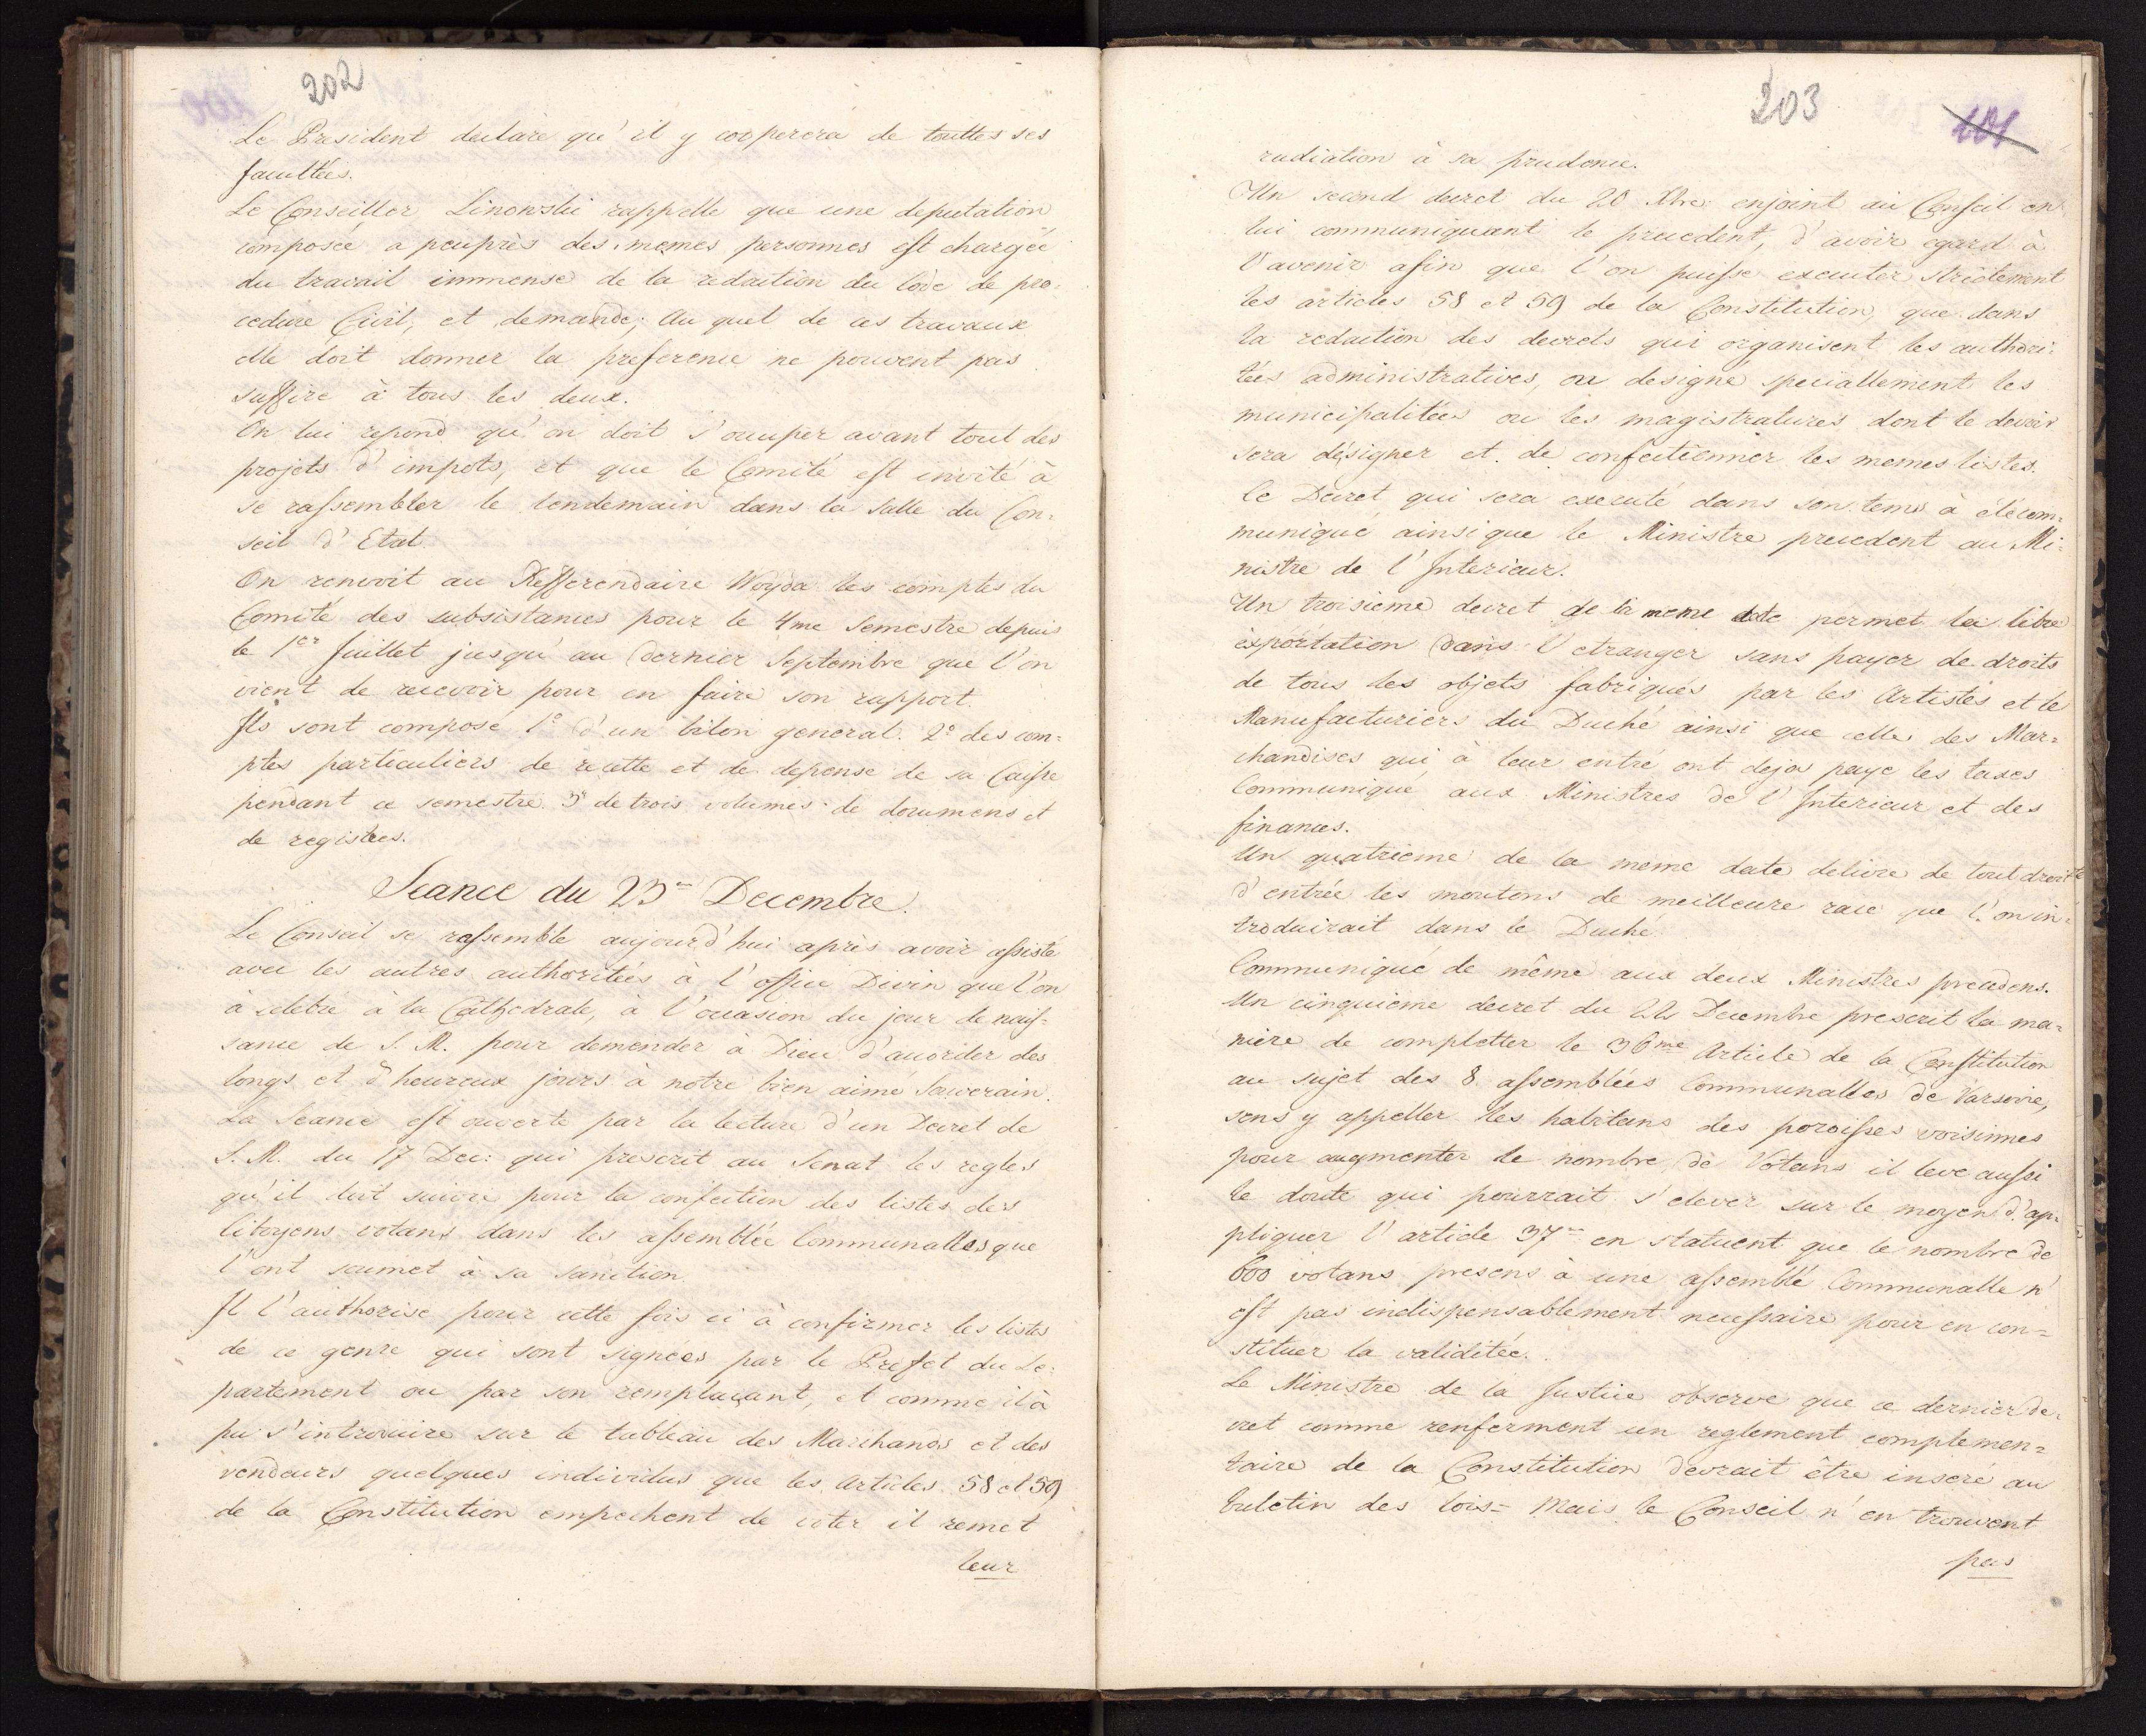 202
Le President declare qu'il y cooperera de touttes ses
facultées.
Le Conseiller Linowski rappelle que une deputation
composée a peuprès des memes personnes est chargée
du travail immense de la redaction du Code de pro=
cedure Civil, et demande; Au quel de ces travaux
elle doit donner la preference ne pouvent pas
suffire à tous les deux.
On lui repond qu'on doit s'occuper avant tout des
projets d'impots, et que le Comité est invité à
se rassembler le lendemain dans la Salle du Con=
seil d'Etat.
On renvoit au Refferendaire Woyda les comptes du
Comité des subsistances pour le 4me Semestre depuis
le 1er Juillet jusqu'au dernier Septembre que l'on
vient de recevoir pour en faire son rapport.
Ils sont composé 1° d'un bilon general. 2° des com=
ptes particuliers de recette et de depense de sa Caisse
pendant ce semestre 3° de trois volumes de documens et
de registres.
Seance du 23me Decembre.
Le Conseil se rassemble aujourd'hui après avoir assisté
avec les autres authoritées à l'office Divin que l'on
à celebré à la Cathedrale, à l'occasion du jour de nais=
sance de S. M. pour demender à Dieu d'accorder des
longs et d'heureux jours à notre bien aimé Sauverain.
La Seance est ouverte par la lecture d'un Decret de
S. M. du 17 Dec: qui prescrit au Senat les regles
qu'il doit suivre pour la confection des listes des
Citoyens votans dans les assemblée Communalles que
l'ont soumet à sa sanction.
Il l'authorise pour cette fois ci à confirmer les listes
de ce genre qui sont signées par le Prefet du De=
partement ou par son remplaçant, et comme il à
pu s'introduire sur le tableau des Marchands et des
vendeurs quelques individus que les Articles 58 et 59
de la Constitution empechent de voter il remet
leur
203
101
radiation à sa prudence.
Un second decret du 20 Xbre: enjoint au Conseil en
lui communiquant le precedent, d'avoir egard à
l'avenir afin que l'on puisse executer strictement
les articles 58 et 59 de la Constitution, que dans
la redaction des decrets qui organisent les authori=
tées administratives, on designe speciallement les
municipalitées ou les magistratures dont le devoir
sera désigner et de confectionner les memes listes.
Ce Decret qui sera executé dans son tems à étécom=
muniqué ainsi que le Ministre precedent au Mi=
nistre de l'Interieur.
Un troisieme decret de la meme date permet la libre
exportation dans l'etranger sans payer de droits
de tous les objets fabriqués par les Artistes et le
Manufacturiers du Duché ainsi que celles des Mar=
chandises qui à leur entré ont deja paye les taxes
Communiqué aux Ministres de l'Interieur et des
finances.
Un quatrieme de la meme date delivre de tout droit
d'entrée les moutons de meilleure race que l'on in=
troduirait dans le Duché.
Communiqué de même aux deux Ministres precedens.
Un cinquieme decret du 22 Decembre prescrit la ma=
niere de completter le 36me Article de la Constitution
au sujet des 8 assemblées Communalles de Varsovie,
sens y appeller les habitans des paroisses voisinnes
pour augmenter le nombre de Votans il leve aussi
le doute qui pourrait s'elever sur le moyen d'ap=
pliquer l'article 37me en statuent que le nombre de
600 votans presens à une assemblé Communalle n'
est pas indispensablement necessaire pour en con=
stituer la validitée.
Le Ministre de la Justice observe que ce dernier de=
cret comme renferment un reglement complemen=
taire de la Constitution devrait être inseré au
buletin des lois= Mais le Conseil n'en trouvent
pas